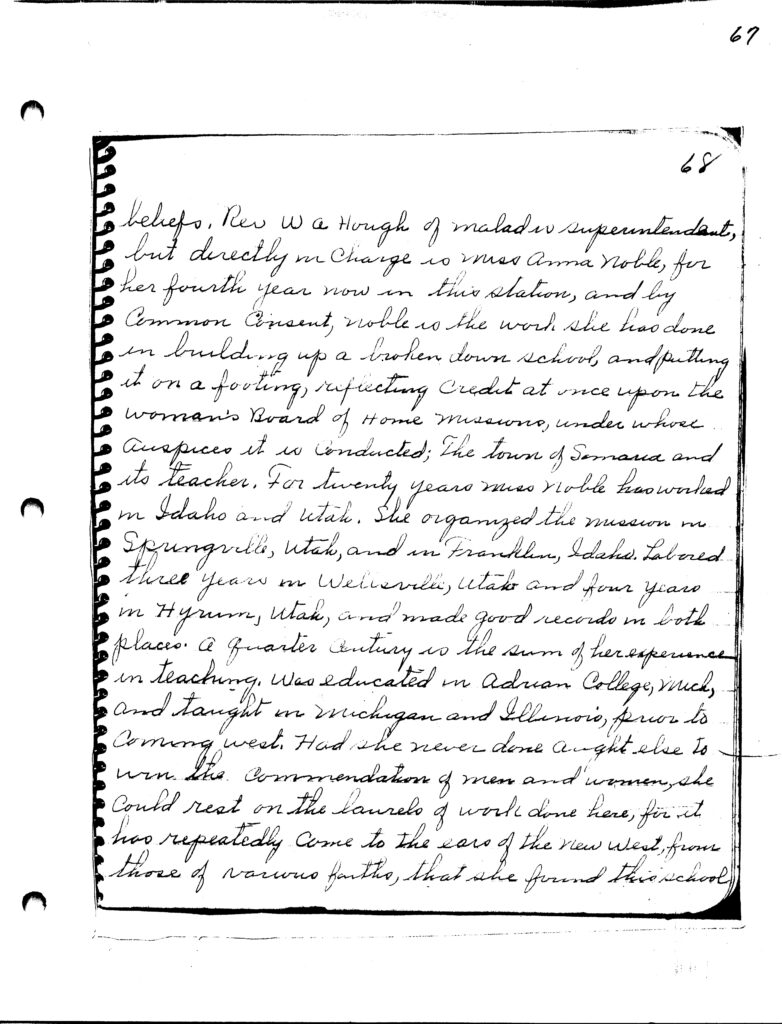 67
68
beliefs. Rev W a Hough of malad is superintendent,
but directly in Charge is Miss Anna Noble, for
her fourth year now in this station, and by
Common Consent, Noble is the work she has done
in building up a broken down school, and putting
it on a footing, reflecting Credit at once upon the
woman's Board of Home Missions, under whose
Auspices it is Conducted; The town of Samaria and
its teacher. For twenty years Miss Noble has worked
in Idaho and Utah. She organized the mission in
Springville, Utah, and in Franklin, Idaho. Labored
three years in Wellsville, Utah and four years
in Hyrum, Utah, and made good records in both
places. A quarter Century is the sum of her experience
in teaching. Was educated in Adrian College, Mich,
and taught in Michigan and Illinois, prior to
Coming west. Had she never done aught else to
win the commendation of men and women, she
Could rest on the laurels of work done here, for it
has repeatedly Come to the ears of the New West, from
those of various faiths, that she found this school